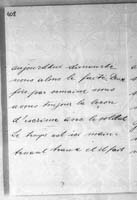 aujourd'hui dimanche
nous alons le faite. Deux
fois par semaine nous
avons toujour la leçon
d'escrime avec le soldat
Le temps est ici
et il fait